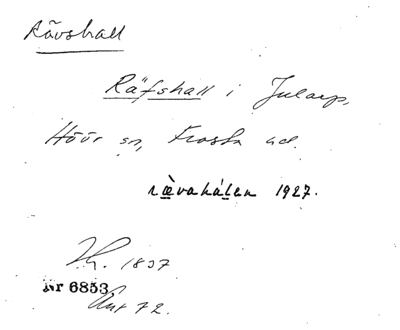 Rävshall
Räfshall i Jularp,
Höör sn, Frosta hd.
rævahálen 1927.
1837
Nr 6853
72.